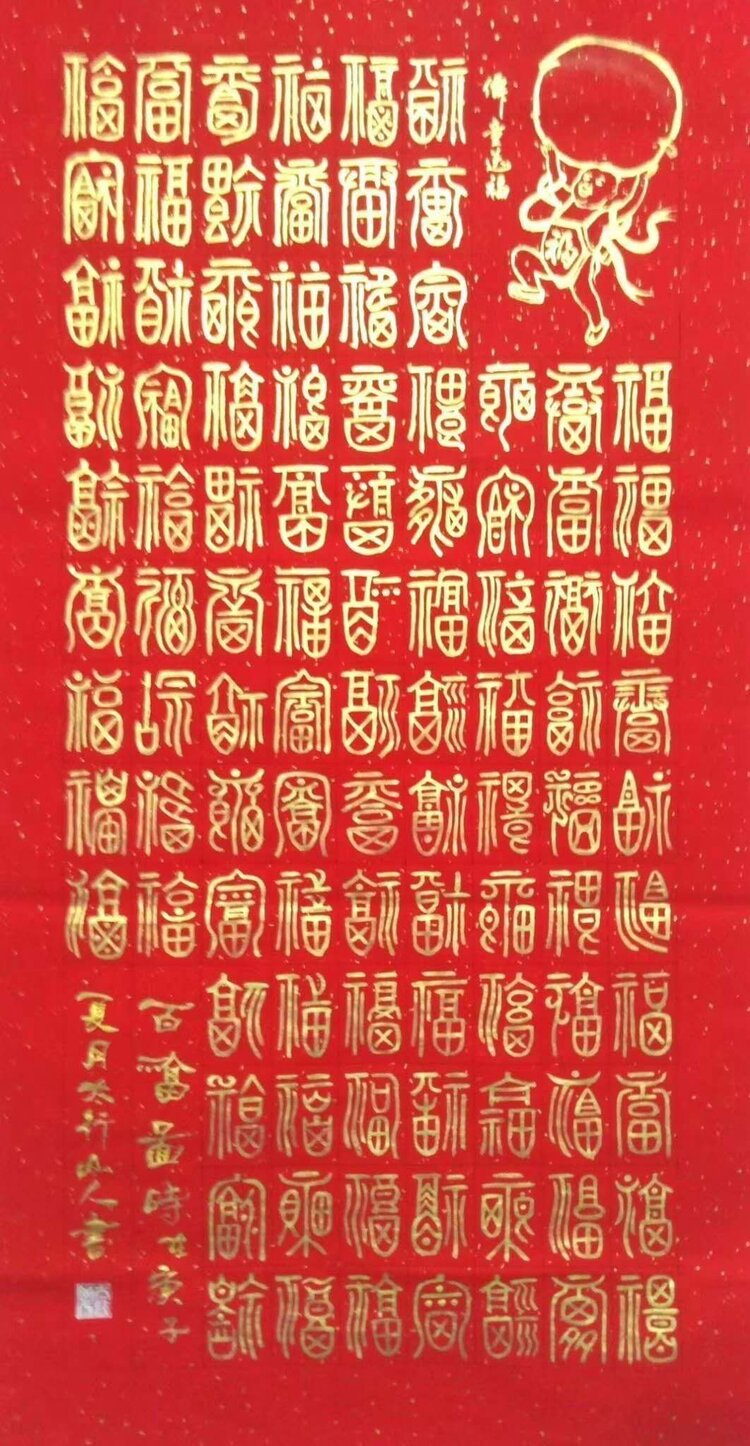 童送福
福
福福福福福福福福福福
福福福福福福福福福福
福福福福福福福福福福
福福福福福福福福福福福福福
福福福福福福福福福福福福福
福福福福福福福福福福福福福
福福福福福福福福福福福福福
福福福福福福福福福
百福圖時在庚子
福福福福福福福福福
夏月太行山人書